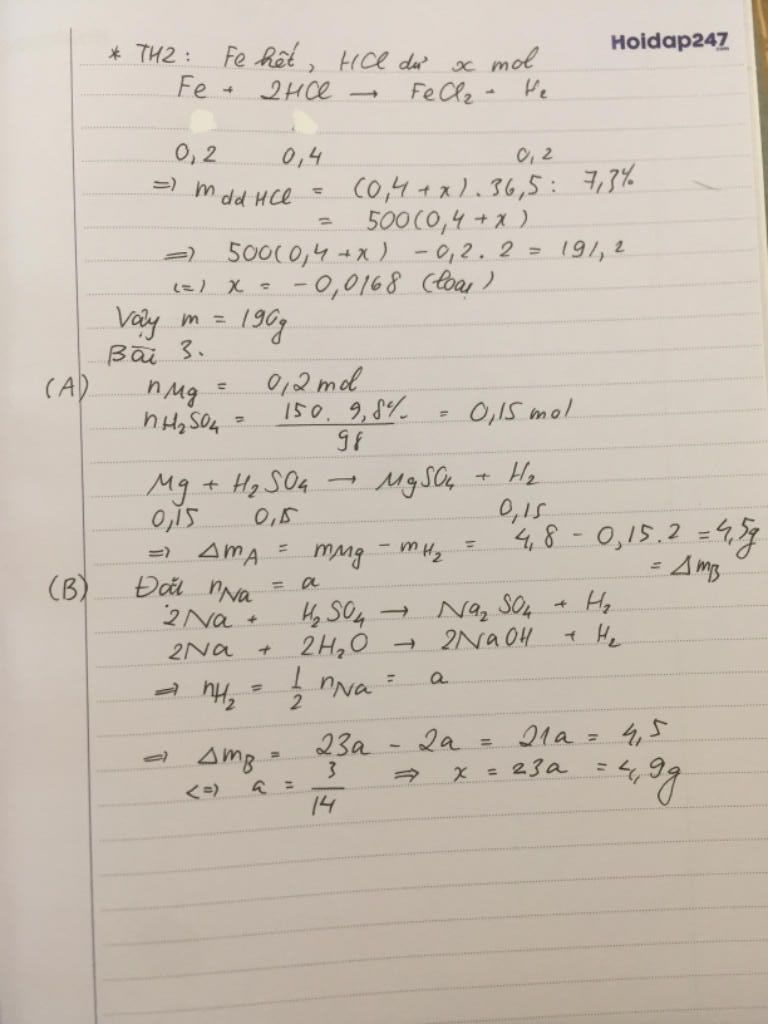 Hoidap247.com
* TH2 : Fe hết, HCl dư x mol
Fe + 2HCl → FeCl₂ + H₂
0,2 0,4 0,2
=> m dd HCl = (0,4 + x) . 36,5 : 7,3%
= 500(0,4 + x)
=> 500(0,4 + x) - 0,2 . 2 = 191,2
<=> x = -0,0168 (loại)
Vậy m = 190g
Bài 3.
(A) nMg = 0,2 mol
nH₂SO₄ = 150 . 9,8% / 98 = 0,15 mol
Mg + H₂SO₄ → MgSO₄ + H₂
0,15 0,15 0,15
=> ΔmA = mMg - mH₂ = 4,8 - 0,15.2 = 4,5g
= ΔmB
(B) Đặt nNa = a
2Na + H₂SO₄ → Na₂SO₄ + H₂
2Na + 2H₂O → 2NaOH + H₂
=> nH₂ = 1/2 nNa = a
=> ΔmB = 23a - 2a = 21a = 4,5
<=> a = 3/14 => x = 23a = 4,9g